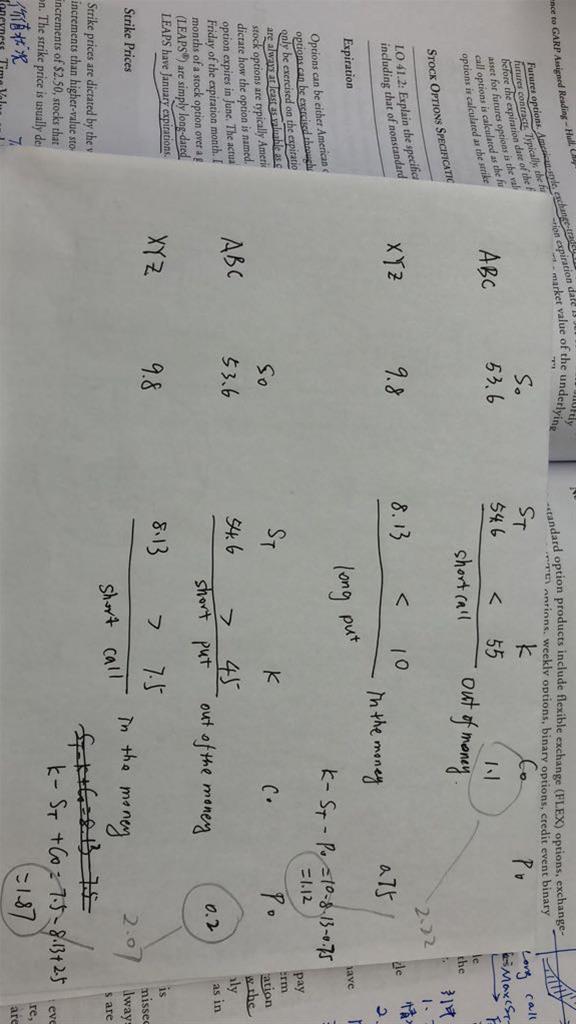 once to GARP Assigned Reading – Hull, Chap
Futures options. American-style, exchange-trade
futures contracts. Typically, the fu
before the expiration date of the f
asset for futures options is the val
call options is calculated as the fu
options is calculated as the strike
expiration date is
market value of the underlying
STOCK OPTIONS SPECIFICATIO
LO 41.2: Explain the specificat
including that of nonstandard
Expiration
Options can be either American o
options can be exercised through
only be exercised on the expiratio
are always at least as valuable as c
stock options are typically Ameri
dicate how the option is named.
option expires in June. The actua
Friday of the expiration month. I
months of a stock option over a g
(LEAPS®) are simply long-dated
LEAPS have January expirations.
Strike Prices
Strike prices are dictated by the v
increments than higher-value stoc
increments of $2.50, stocks that
n. The strike price is usually de
standard option products include flexible exchange (FLEX) options, exchange-
options, weekly options, binary options, credit event binary
S₀ S_T K C₀ P₀
ABC 53.6 54.6 < 55 1.1
short call out of money.
XYZ 9.8 8.13 < 10 0.75
long put in the money
K - S_T - P₀ = 10 - 8.13 - 0.75
= 1.12
2.22
S₀ S_T K C₀ P₀
ABC 53.6 54.6 > 45 0.2
short put out of the money
XYZ 9.8 8.13 > 7.5
short call in the money
S_T - K + C₀ = 8.13 - 7.5
K - S_T + C₀ = 7.5 - 8.13 + 2.5
= 1.87
2.07
Long call